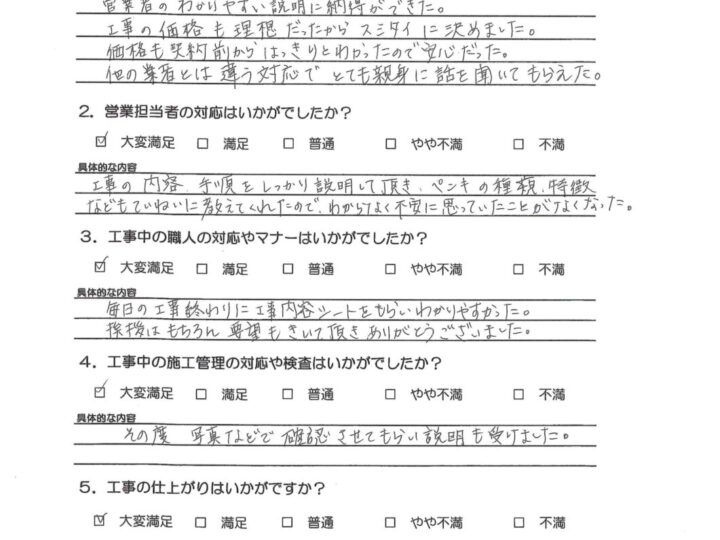 営業者のわかりやすい説明に納得ができた。
工事の価格も理想だったからスミタイに決めました。
価格も契約前からはっきりとわかったので安心だった。
他の業者とは違う対応でとても親身に話を聞いてもらえた。
2．営業担当者の対応はいかがでしたか？
☑ 大変満足 □ 満足 □ 普通 □ やや不満 □ 不満
具体的な内容
工事の内容、手順をしっかり説明して頂き、ペンキの種類、特徴
などもていねいに教えてくれたので、わからなく不安に思っていたことがなくなった。
3．工事中の職人の対応やマナーはいかがでしたか？
☑ 大変満足 □ 満足 □ 普通 □ やや不満 □ 不満
具体的な内容
毎日の工事終わりに工事内容シートをもらいわかりやすかった。
挨拶はもちろん要望もきいて頂きありがとうございました。
4．工事中の施工管理の対応や検査はいかがでしたか？
☑ 大変満足 □ 満足 □ 普通 □ やや不満 □ 不満
具体的な内容
その度 写真などで確認させてもらい説明も受けました。
5．工事の仕上がりはいかがですか？
☑ 大変満足 □ 満足 □ 普通 □ やや不満 □ 不満